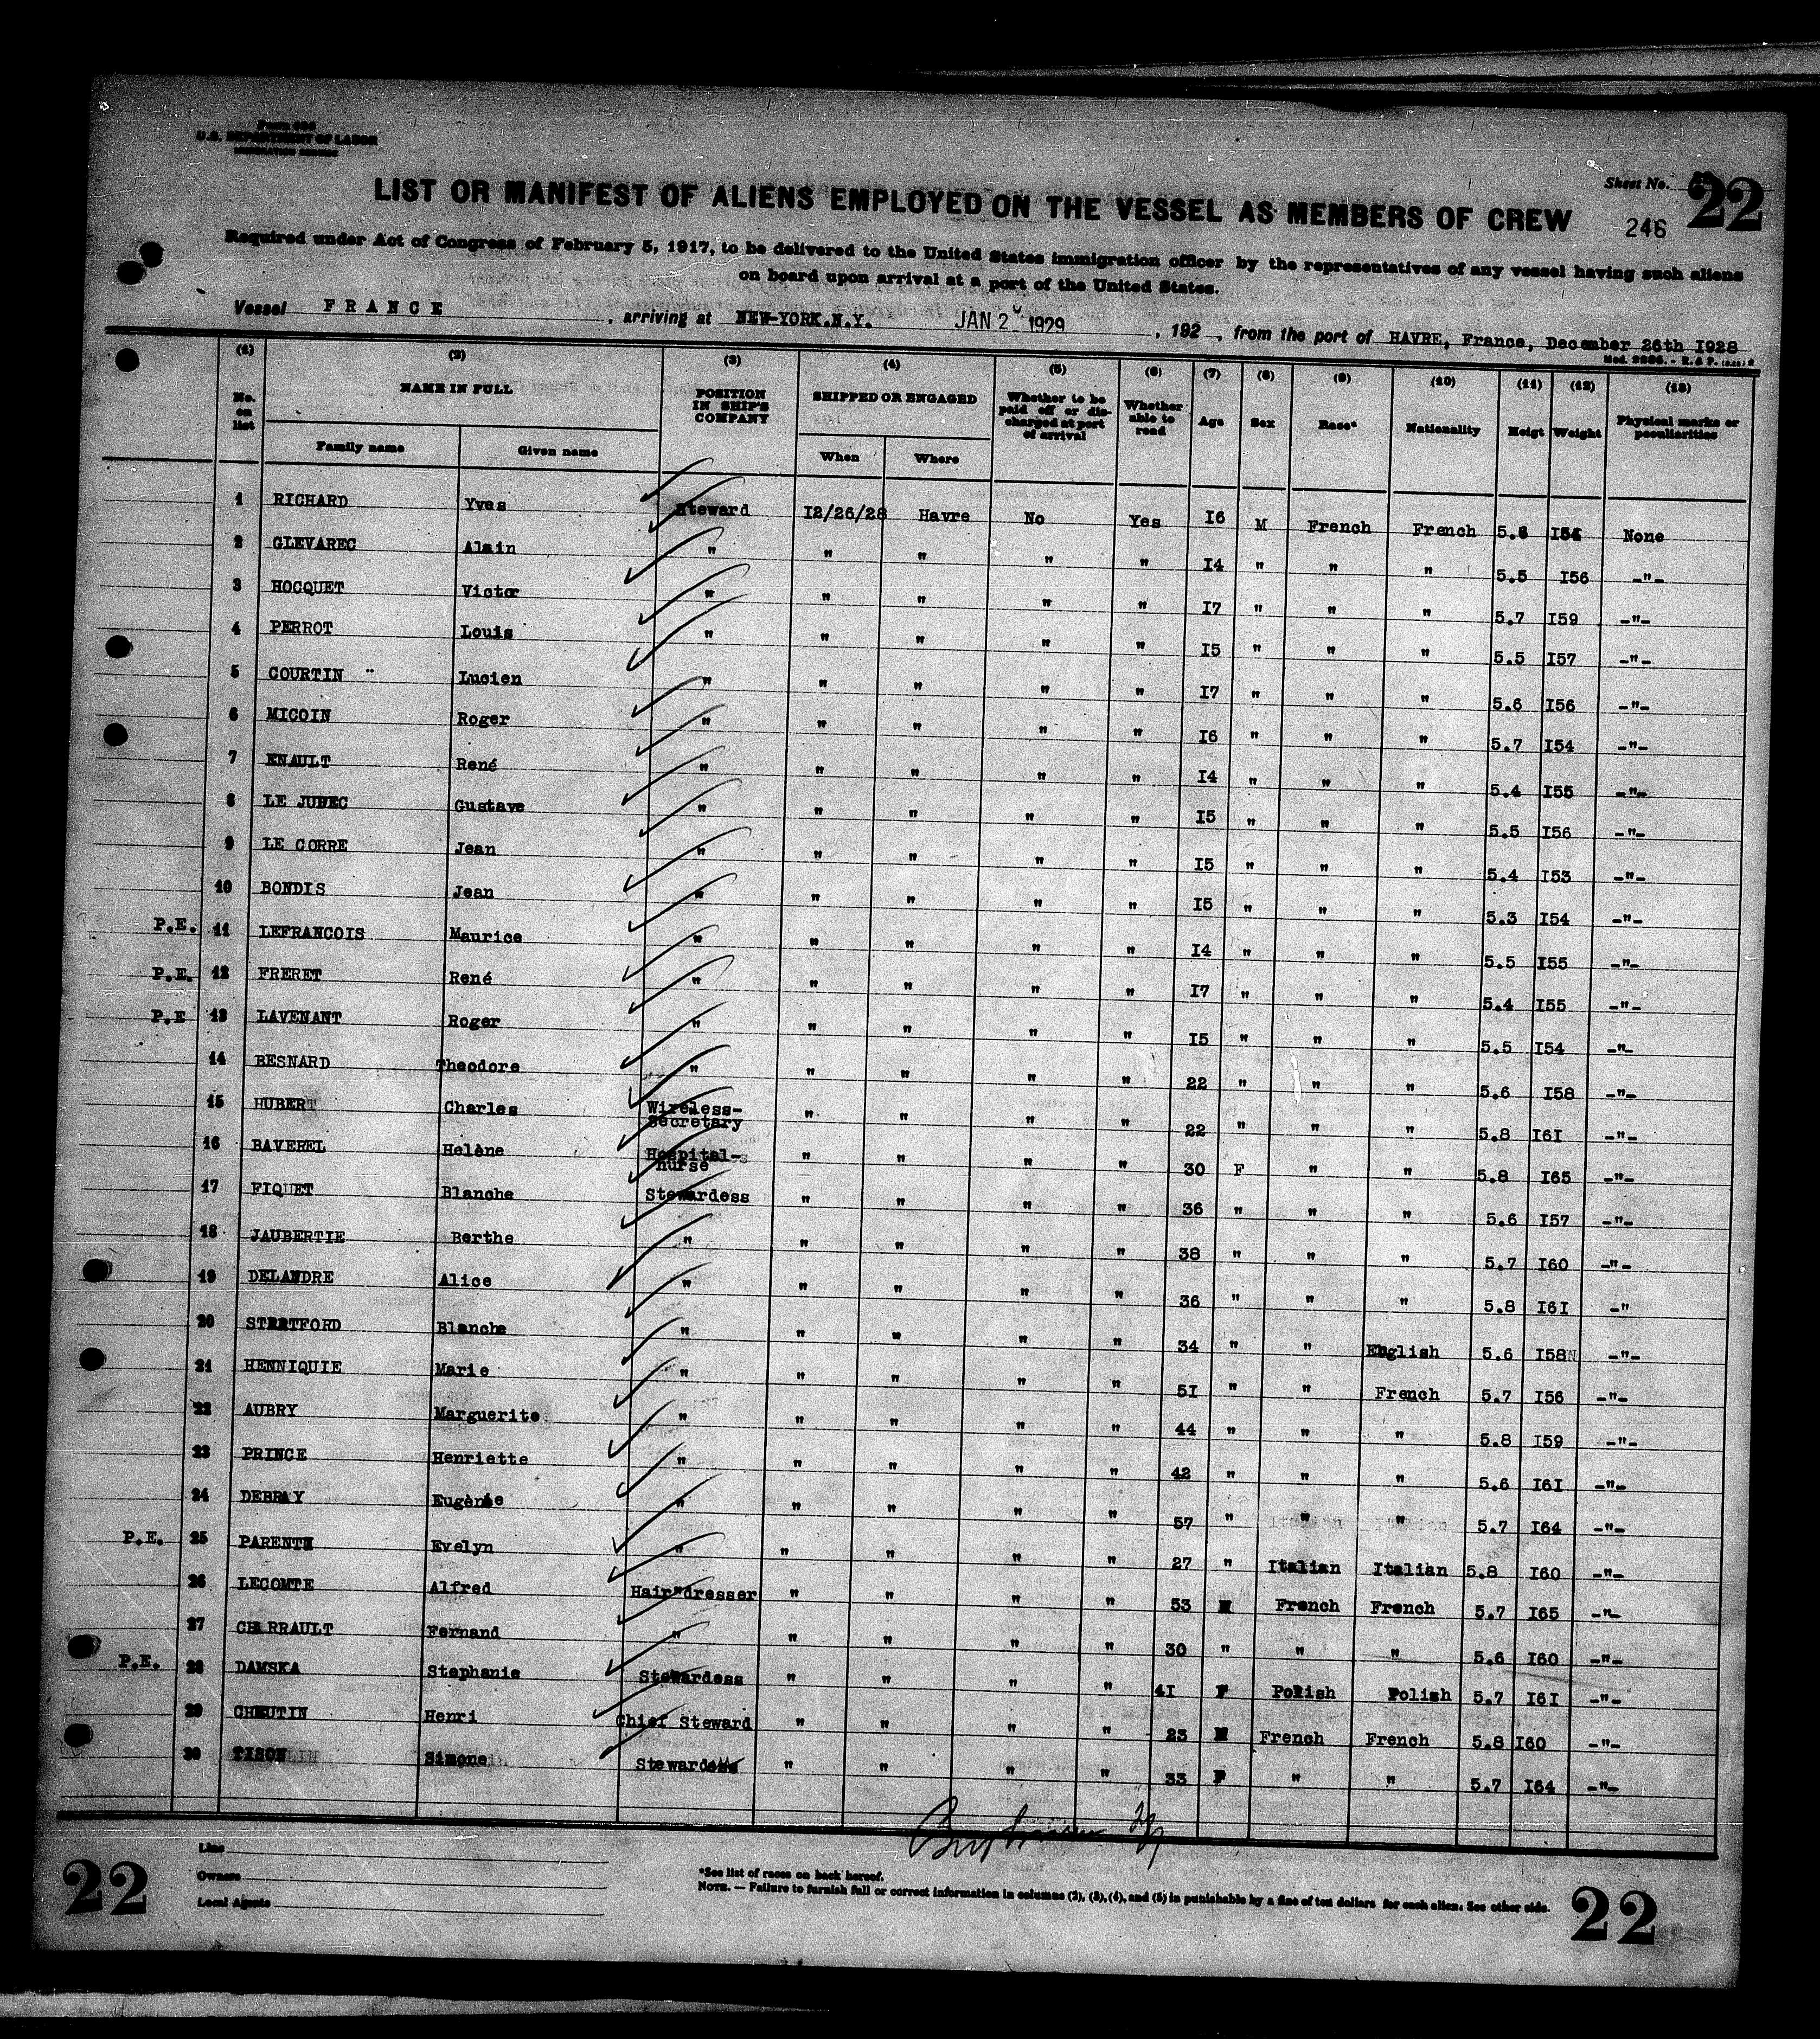 Form 689
U.S. DEPARTMENT OF LABOR
IMMIGRATION SERVICE
Sheet No. 22
LIST OR MANIFEST OF ALIENS EMPLOYED ON THE VESSEL AS MEMBERS OF CREW
246
Required under Act of Congress of February 5, 1917, to be delivered to the United States immigration officer by the representatives of any vessel having such aliens
on board upon arrival at a port of the United States.
Vessel FRANCE , arriving at NEW-YORK.N.Y. JAN 2 1929 , 192 , from the port of HAVRE, France, December 26th I928
(1) (2) (3) (4) (5) (6) (7) (8) (9) (10) (11) (12) (13)
No. on list NAME IN FULL POSITION IN SHIP'S COMPANY SHIPPED OR ENGAGED Whether to be paid off or discharged at port of arrival Whether able to read Age Sex Race* Nationality Heigt Weight Physical marks or peculiarities
Family name Given name When Where
1 RICHARD Yves Steward I2/26/28 Havre No Yes I6 M French French 5.6 I54 None
2 GLEVAREC Alain " " " " " I4 " " " 5.5 I56 -"-
3 HOCQUET Victor " " " " " I7 " " " 5.7 I59 -"-
4 PERROT Louis " " " " " I5 " " " 5.5 I57 -"-
5 COURTIN Lucien " " " " " I7 " " " 5.6 I56 -"-
6 MICOIN Roger " " " " " I6 " " " 5.7 I54 -"-
7 ENAULT René " " " " " I4 " " " 5.4 I55 -"-
8 LE JUBEC Gustave " " " " " I5 " " " 5.5 I56 -"-
9 LE CORRE Jean " " " " " I5 " " " 5.4 I53 -"-
10 BONDIS Jean " " " " " I5 " " " 5.3 I54 -"-
P.E. 11 LEFRANCOIS Maurice " " " " " I4 " " " 5.5 I55 -"-
P.E. 12 FRERET René " " " " " I7 " " " 5.4 I55 -"-
P.E 13 LAVENANT Roger " " " " " I5 " " " 5.5 I54 -"-
14 BESNARD Theodore " " " " " 22 " " " 5.6 I58 -"-
15 HUBERT Charles Wireless-Secretary " " " " 22 " " " 5.8 I6I -"-
16 BAVEREL Helène Hospital-nurse " " " " 30 F " " 5.8 I65 -"-
17 FIQUET Blanche Stewardess " " " " 36 " " " 5.6 I57 -"-
18 JAUBERTIE Berthe " " " " " 38 " " " 5.7 I60 -"-
19 DELANDRE Alice " " " " " 36 " " " 5.8 I6I -"
20 STRATFORD Blanche " " " " " 34 " " English 5.6 I58 -"-
21 HENNIQUIE Marie " " " " " 5I " " French 5.7 I56 -"-
22 AUBRY Marguerite " " " " " 44 " " " 5.8 I59 -"-
23 PRINCE Henriette " " " " " 42 " " " 5.6 I6I -"-
24 DEBRAY Eugènie " " " " " 57 " " " 5.7 I64 -"-
P.E. 25 PARENTI Evelyn " " " " " 27 " Italian Italian 5.8 I60 -"-
26 LECOMTE Alfred Hair-dresser " " " " 53 M French French 5.7 I65 -"-
27 CHARRAULT Fernand " " " " " 30 " " " 5.6 I60 -"-
P.E. 28 DAMSKA Stephanie Stewardess " " " " 4I F Polish Polish 5.7 I6I -"-
29 CHEUTIN Henri Chief Steward " " " " 23 M French French 5.8 I60 -"-
30 TISON Simone Stewardess " " " " 33 F " " 5.7 I64 -"-
Line
Owners
Local Agents
*See list of races on back hereof.
NOTE. — Failure to furnish full or correct information in columns (2), (3), (4), and (5) in punishable by a fine of ten dollars for each alien. See other side.
22
22